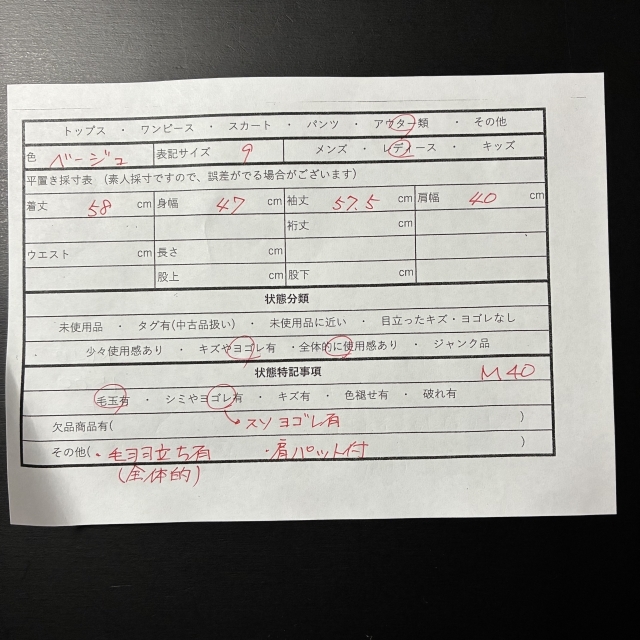 トップス ・ ワンピース ・ スカート ・ パンツ ・ アウター類 ・ その他
色 ベージュ 表記サイズ 9 メンズ ・ レディース ・ キッズ
平置き採寸表 (素人採寸ですので、誤差がでる場合がございます)
着丈 58 cm 身幅 47 cm 袖丈 57.5 cm 肩幅 40 cm
裄丈 cm
ウエスト cm 長さ cm
股上 cm 股下 cm
状態分類
未使用品 ・ タグ有(中古品扱い) ・ 未使用品に近い ・ 目立ったキズ・ヨゴレなし
少々使用感あり ・ キズやヨゴレ有 ・全体的に使用感あり ・ ジャンク品
状態特記事項 M40
毛玉有 ・ シミやヨゴレ有 ・ キズ有 ・ 色褪せ有 ・ 破れ有
欠品商品有( スソヨゴレ有 )
その他(・毛羽立ち有 ・肩パット付 )
(全体的)